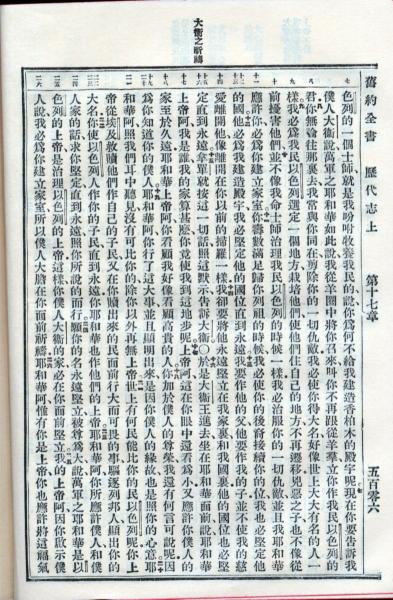 舊約全書 歷代志上 第十七章 五百零六
大衛之祈禱
色列的一個士師就是我吩咐牧養我民的說你爲何不給我建造香柏木的殿宇呢現在你要告訴我
僕人大衛說萬軍之耶和華如此說我從羊圈中將你召來叫你不再跟從羊羣立你作我民以色列的
君你無論往那裏去我常與你同在剪除你的一切仇敵我必使你得大名好像世上大大有名的人一
樣我必爲我民以色列選定一個地方栽培他們使他們住自己的地方不再遷移兇惡之子也不像從
前擾害他們並不像我命士師治理我民以色列的時候一樣我必治服你的一切仇敵並且我耶和華
應許你必爲你建立家室你壽數滿足歸你列祖的時候我必使你的後裔接續你的位我也必堅定他
的國他必爲我建造殿宇我必堅定他的國位直到永遠我要作他的父他要作我的子並不使我的慈
愛離開他像離開在你以前的掃羅一樣我卻要將他永遠堅立在我家裏和我國裏他的國位也必堅
定直到永遠拿單就按這一切話照這默示告訴大衛○於是大衛王進去坐在耶和華面前說耶和華
上帝阿我是誰我的家算甚麼你竟使我到這地步呢上帝阿這在你眼中還看爲小又應許你僕人的
家至於久遠耶和華上帝阿你看顧我好像看顧高貴的人你加於僕人的尊榮我還有何言可說呢因
爲你知道你的僕人耶和華阿你行了這大事並且顯明出來是因你僕人的緣故也是照你的心意耶
和華阿照我們耳中聽見沒有可比你的除你以外再無上帝世上有何民能比你的民以色列呢你上
帝從埃及救贖他們作自己的子民又在你贖出來的民面前行大而可畏的事驅逐列邦人顯出你的
大名你使以色列人作你的子民直到永遠你耶和華也作他們的上帝耶和華阿你所應許僕人和僕
人家的話求你堅定直到永遠照你所說的而行願你的名永遠堅立被尊爲大說萬軍之耶和華是以
色列的上帝是治理以色列的上帝這樣你僕人大衛的家必在你面前堅立我的上帝阿因你啟示僕
人說我必爲你建立家室所以僕人大膽在你面前祈禱耶和華阿惟有你是上帝你也應許將這福氣